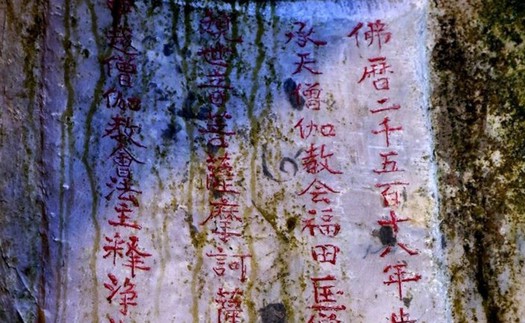 佛暦二千五百十八年
承天僧伽教会福田
世音菩薩摩訶薩
越僧伽教會法主释浄